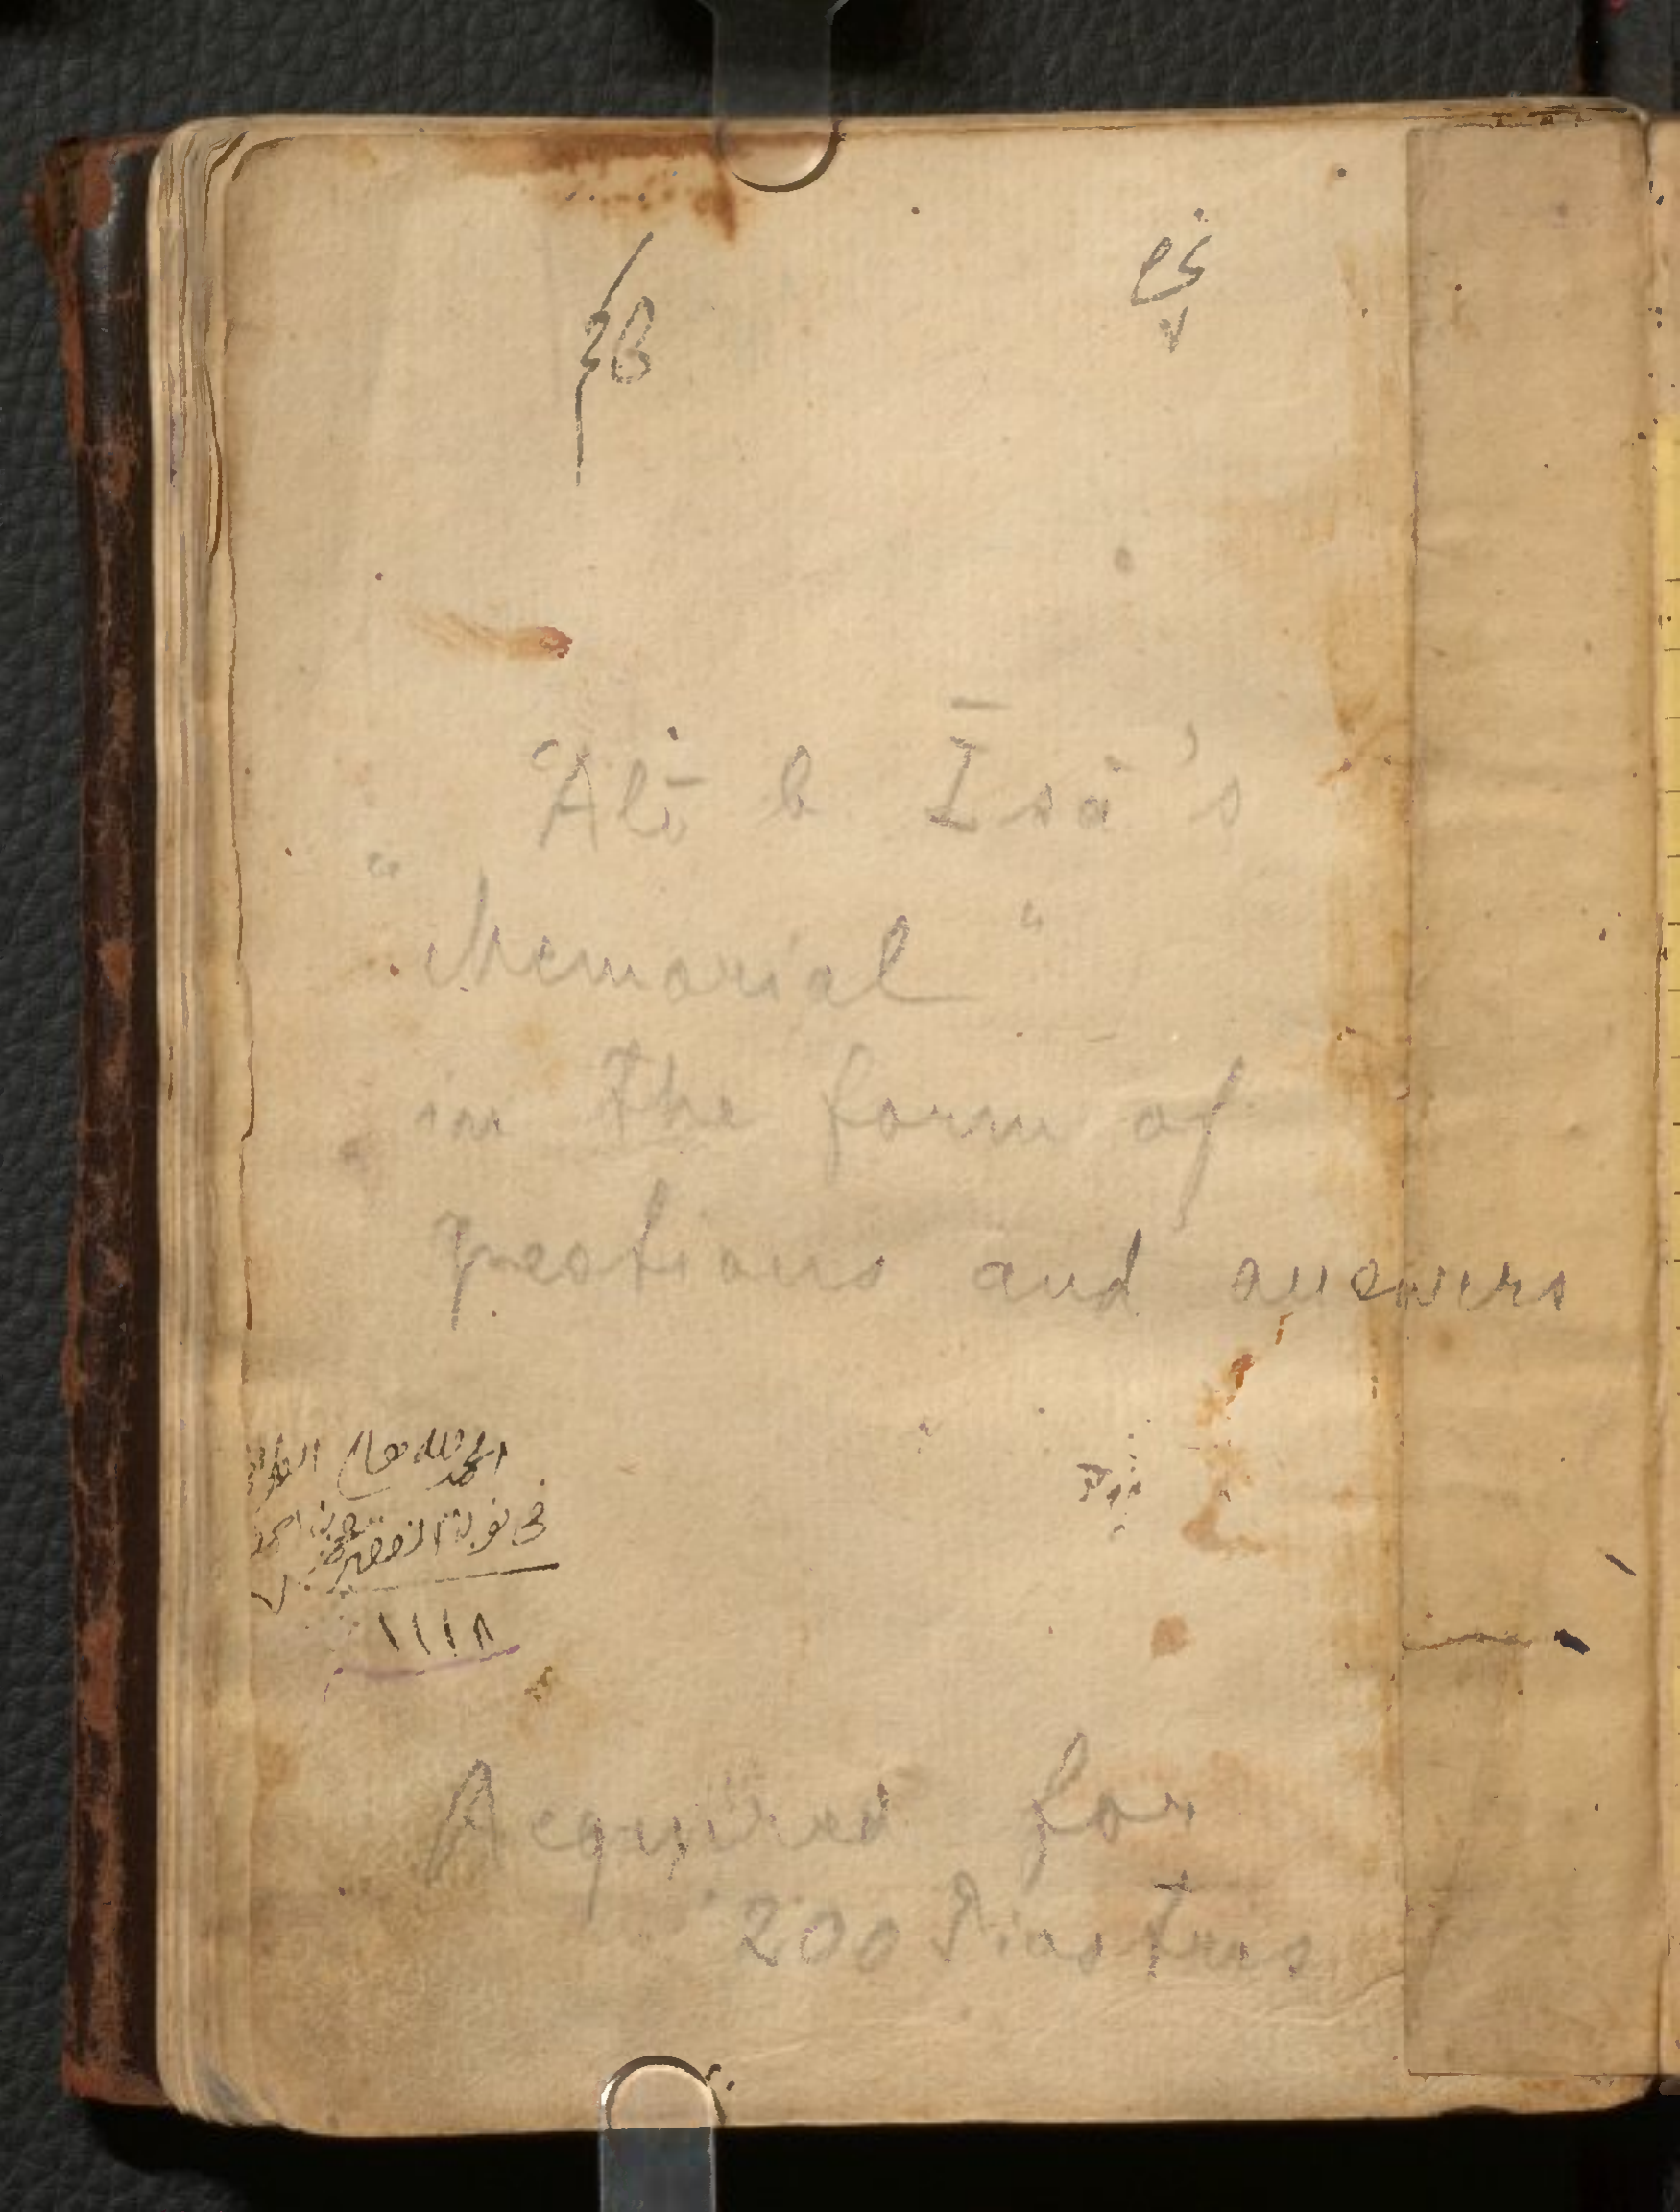 ʿAlī b Īsā's
"Memorial"
in the form of
questions and answers
الحمد لله
في نوبة الفقير
١١١٨
Acquired for
200 Piastres